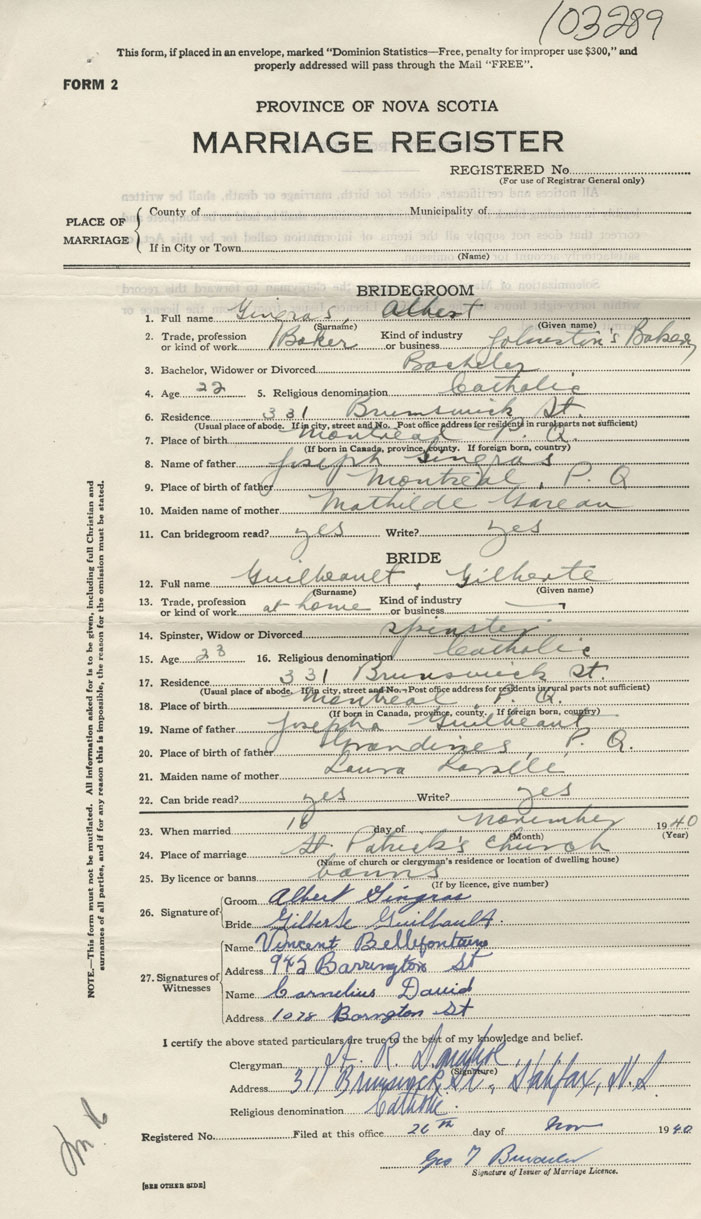 103289
This form, if placed in an envelope, marked "Dominion Statistics—Free, penalty for improper use $300," and
properly addressed will pass through the Mail "FREE".
FORM 2
PROVINCE OF NOVA SCOTIA
MARRIAGE REGISTER
REGISTERED No.
(For use of Registrar General only)
PLACE OF MARRIAGE
County of Municipality of
If in City or Town
(Name)
BRIDEGROOM
1. Full name Gingras, Albert
(Surname) (Given name)
2. Trade, profession or kind of work Baker Kind of industry or business Johnston's Bakery
3. Bachelor, Widower or Divorced Bachelor
4. Age 22 5. Religious denomination Catholic
6. Residence 331 Brunswick St.
(Usual place of abode. If in city, street and No. Post office address for residents in rural parts not sufficient)
7. Place of birth Montreal P. Q.
(If born in Canada, province, county. If foreign born, country)
8. Name of father Joseph Gingras
9. Place of birth of father Montreal, P. Q
10. Maiden name of mother Mathilde Gareau
11. Can bridegroom read? yes Write? yes
BRIDE
12. Full name Guilbeault, Gilberte
(Surname) (Given name)
13. Trade, profession or kind of work at home Kind of industry or business
14. Spinster, Widow or Divorced spinster
15. Age 23 16. Religious denomination Catholic
17. Residence 331 Brunswick St.
(Usual place of abode. If in city, street and No. Post office address for residents in rural parts not sufficient)
18. Place of birth Montreal P. Q.
(If born in Canada, province, county. If foreign born, country)
19. Name of father Joseph Guilbeault
20. Place of birth of father P. Q.
21. Maiden name of mother Laura
22. Can bride read? yes Write? yes
23. When married 16 day of November 1940
(Month) (Year)
24. Place of marriage St. Patrick's Church
(Name of church or clergyman's residence or location of dwelling house)
25. By licence or banns banns
(If by licence, give number)
26. Signature of
Groom Albert Gingras
Bride Gilberte Guilbault
27. Signatures of Witnesses
Name Vincent Bellefontaine
Address 945 Barrington St
Name Cornelius David
Address 1078 Barngton St
I certify the above stated particulars are true to the best of my knowledge and belief.
Clergyman R.
(Signature)
Address 311 Brunswick St., Halifax, N.S.
Religious denomination Catholic
Registered No. Filed at this office 26th day of Nov 1940
Geo T
Signature of Issuer of Marriage Licence.
[SEE OTHER SIDE]
NOTE.—This form must not be mutilated. All information asked for is to be given, including full Christian and
surnames of all parties, and if for any reason this is impossible, the reason for the omission must be stated.